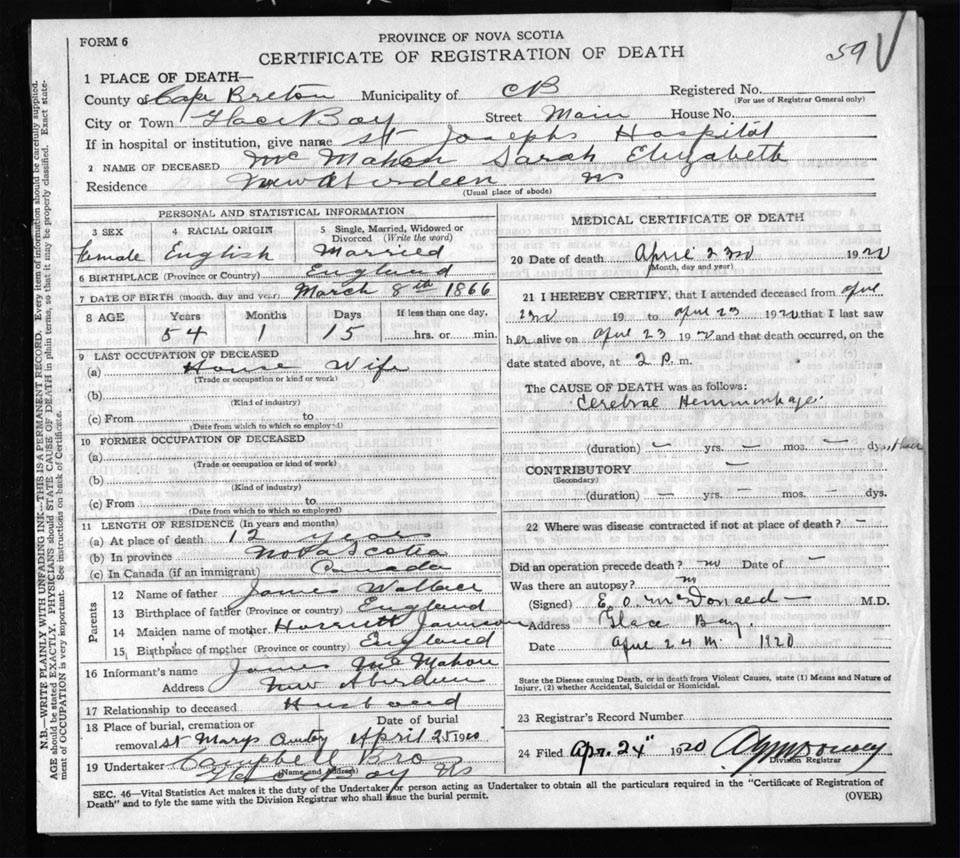 FORM 6
PROVINCE OF NOVA SCOTIA
CERTIFICATE OF REGISTRATION OF DEATH
59 V
1 PLACE OF DEATH—
County of Cape Breton Municipality of CB Registered No.
(For use of Registrar General only)
City or Town Glace Bay Street Main House No.
If in hospital or institution, give name St Josephs Hospital
2 NAME OF DECEASED McMahon Sarah Elizabeth
Residence New Aberdeen NS
(Usual place of abode)
PERSONAL AND STATISTICAL INFORMATION
3 SEX 4 RACIAL ORIGIN 5 Single, Married, Widowed or Divorced (Write the word)
Female English Married
6 BIRTHPLACE (Province or Country) England
7 DATE OF BIRTH (month, day and year) March 8th 1866
8 AGE Years Months Days If less than one day,
54 1 15 hrs. or min.
9 LAST OCCUPATION OF DECEASED
(a) House Wife
(Trade or occupation or kind or work)
(b)
(Kind of industry)
(c) From to
(Date from which to which so employed)
10 FORMER OCCUPATION OF DECEASED
(a)
(Trade or occupation or kind of work)
(b)
(Kind of industry)
(c) From to
(Date from which to which so employed)
11 LENGTH OF RESIDENCE (In years and months)
(a) At place of death 12 years
(b) In province Nova Scotia
(c) In Canada (if an immigrant) Canada
Parents
12 Name of father James Wallace
13 Birthplace of father (Province or country) England
14 Maiden name of mother Harriett
15 Birthplace of mother (Province or country) England
16 Informant's name James McMahon
Address New Aberdeen
17 Relationship to deceased Husband
18 Place of burial, cremation or Date of burial
removal St Marys April 25 1920
19 Undertaker Campbell Bro
(Name and Address)
Glace Bay NS
MEDICAL CERTIFICATE OF DEATH
20 Date of death April 23rd 1920
(Month, day and year)
21 I HEREBY CERTIFY, that I attended deceased from April
23rd 19 to April 23 1920 that I last saw
her alive on April 23 19 20 and that death occurred, on the
date stated above, at 2 P. m.
The CAUSE OF DEATH was as follows:
Cerebral Hemmorhage
(duration) — yrs. — mos. — dys.
CONTRIBUTORY —
(Secondary)
(duration) — yrs. — mos. — dys.
22 Where was disease contracted if not at place of death? —
Did an operation precede death? no Date of —
Was there an autopsy? no
(Signed) E. O. McDonald — M.D.
Address Glace Bay.
Date April 24th 1920
State the Disease causing Death, or in death from Violent Causes, state (1) Means and Nature of
Injury, (2) whether Accidental, Suicidal or Homicidal.
23 Registrar's Record Number
24 Filed Apr. 24" 1920
Division Registrar
SEC. 46—Vital Statistics Act makes it the duty of the Undertaker or person acting as Undertaker to obtain all the particulars required in the "Certificate of Registration of
Death" and to fyle the same with the Division Registrar who shall issue the burial permit.
(OVER)
N.B.—WRITE PLAINLY WITH UNFADING INK—THIS IS A PERMANENT RECORD. Every item of information should be carefully supplied.
AGE should be stated EXACTLY. PHYSICIANS should STATE CAUSE OF DEATH in plain terms, so that it may be properly classified. Exact state-
ment of OCCUPATION is very important. See instructions on back of Certificate.